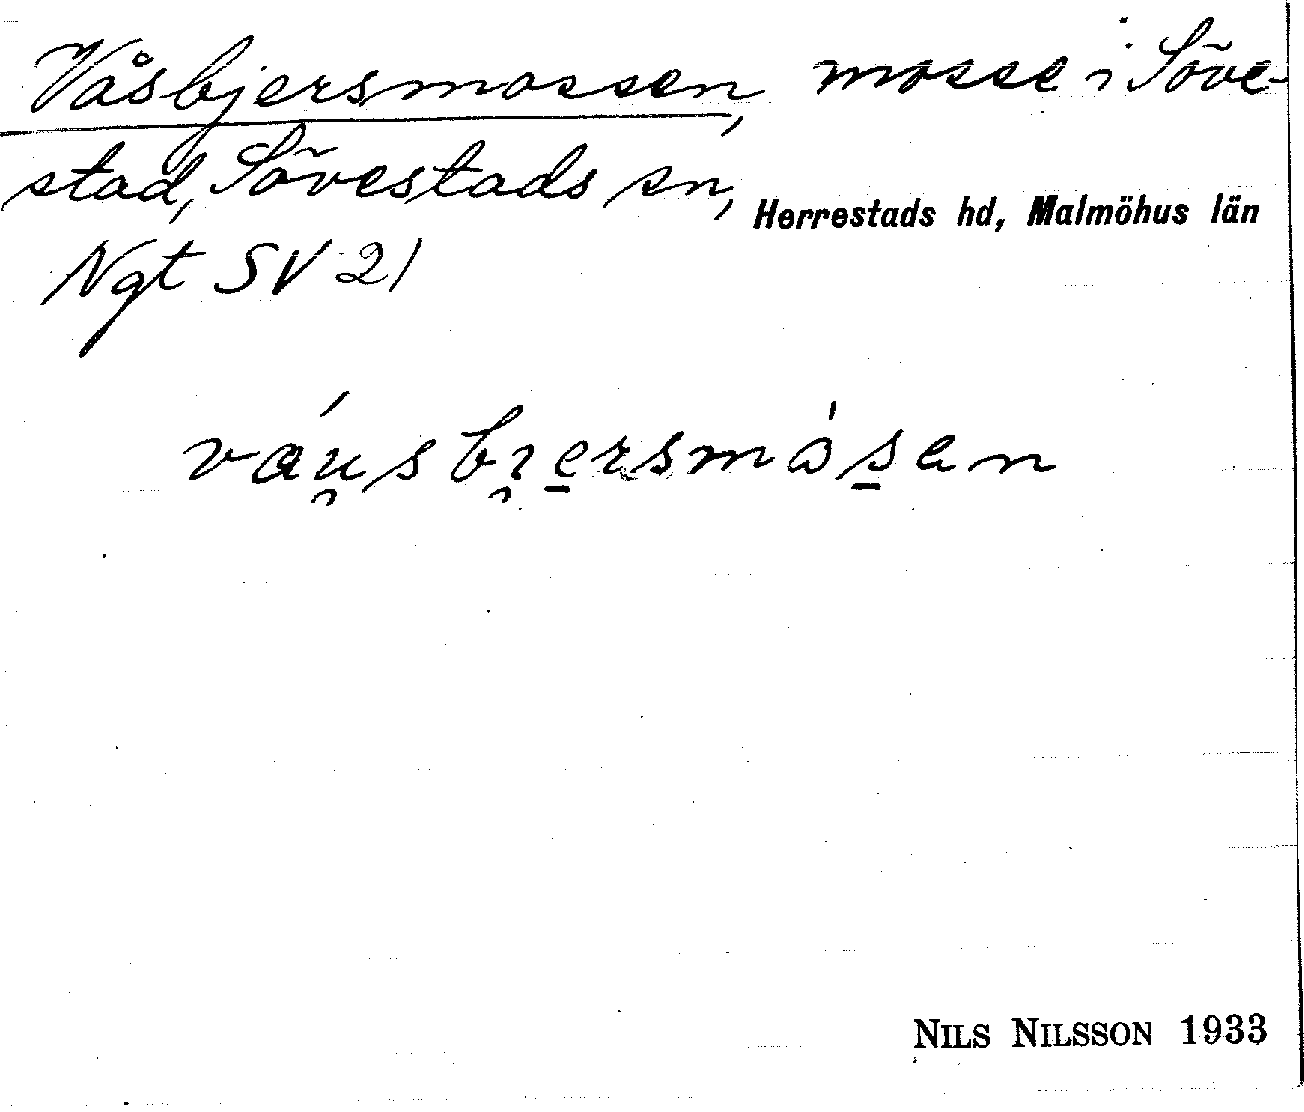 Våsbjersmossen, mosse i Söve-
stad, Sövestads sn, Herrestads hd, Malmöhus län
Ngt SV 21
NILS NILSSON 1933